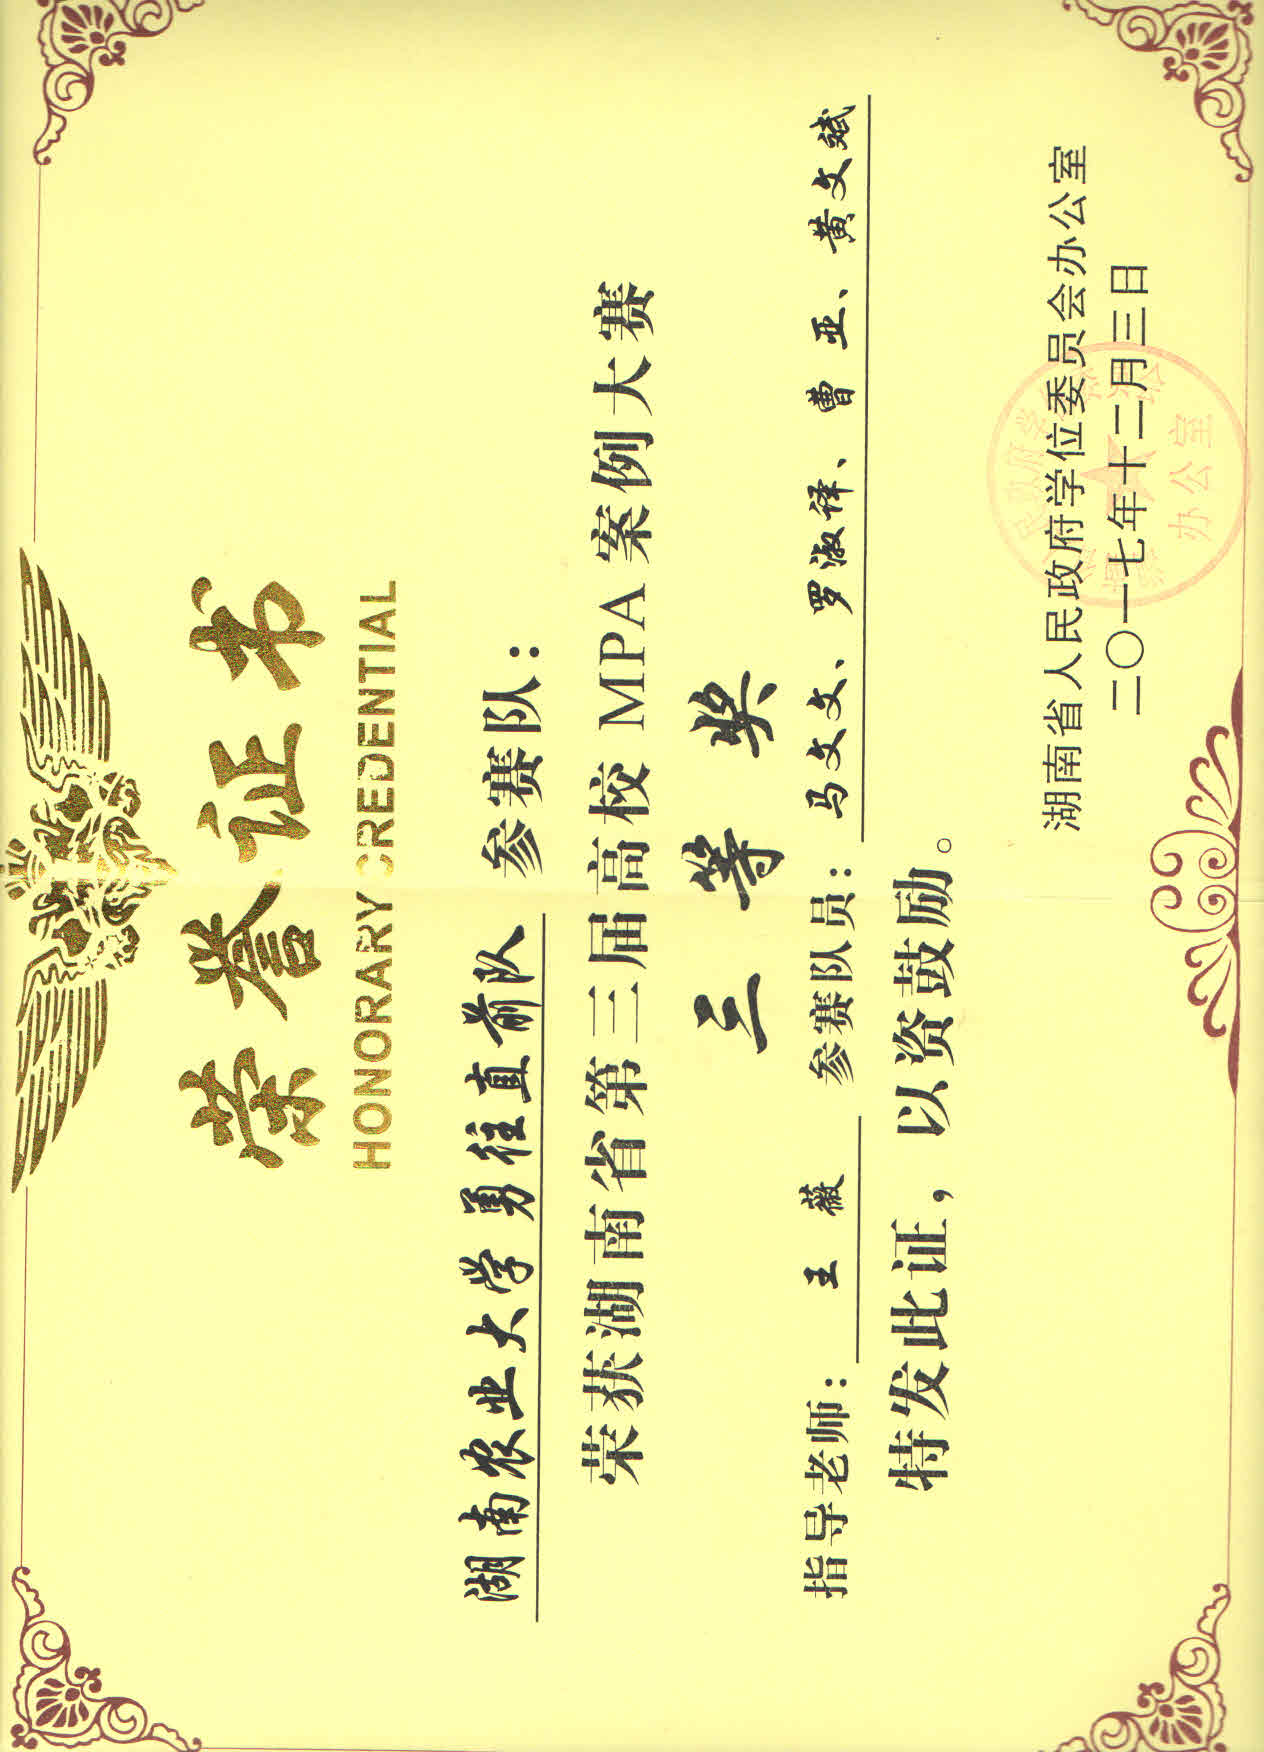 荣誉证书
HONORARY CREDENTIAL
湖南农业大学勇往直前队 参赛队：
荣获湖南省第三届高校 MPA 案例大赛
三等奖
指导老师：王薇 参赛队员：马文文、罗淑译、曹亚、黄文斌
特发此证，以资鼓励。
湖南省人民政府学位委员会办公室
二〇一七年十二月三日
办公室